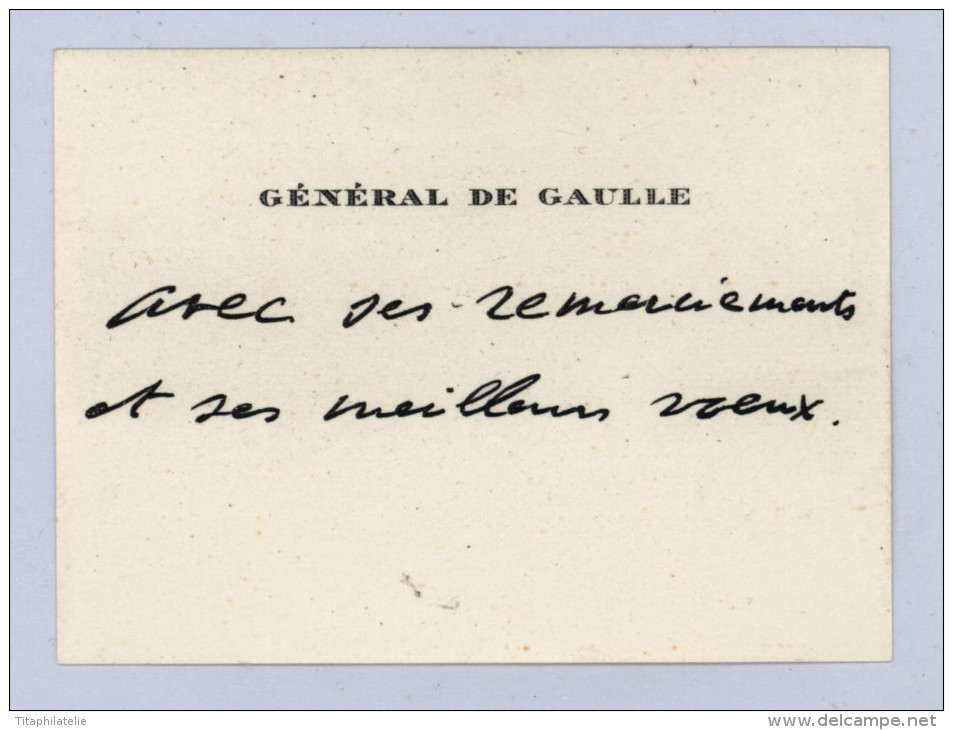 GÉNÉRAL DE GAULLE
avec ses remerciements
et ses meilleurs voeux.
Titaphilatelie
www.delcampe.net